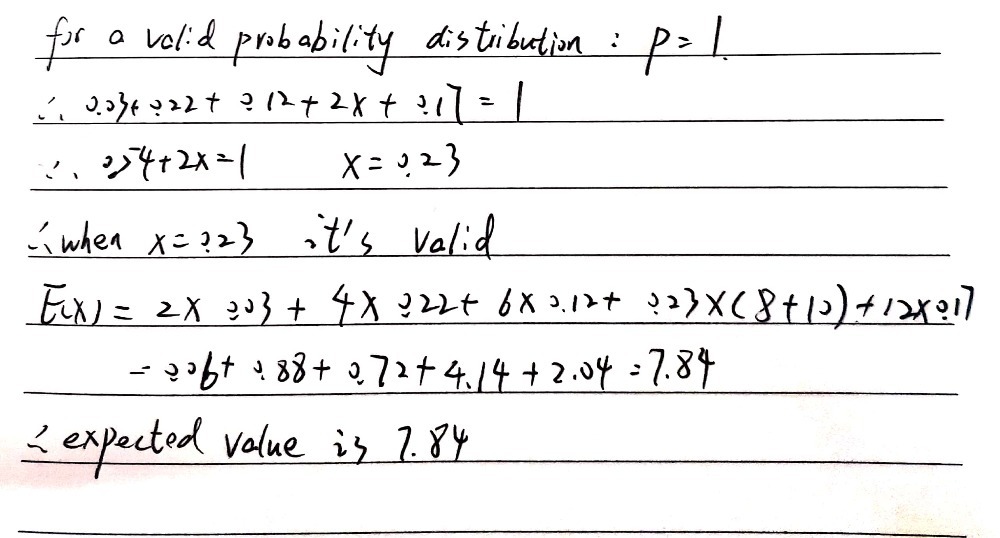 for a valid probability distribution : P = 1.
∴ 0.03 + 0.22 + 0.12 + 2x + 0.17 = 1
∴ 0.54 + 2x = 1 x = 0.23
∴ when x = 0.23 it's valid
E(X) = 2 × 0.03 + 4 × 0.22 + 6 × 0.12 + 0.23 × (8 + 10) + 12 × 0.17
= 0.06 + 0.88 + 0.72 + 4.14 + 2.04 = 7.84
∴ expected value is 7.84